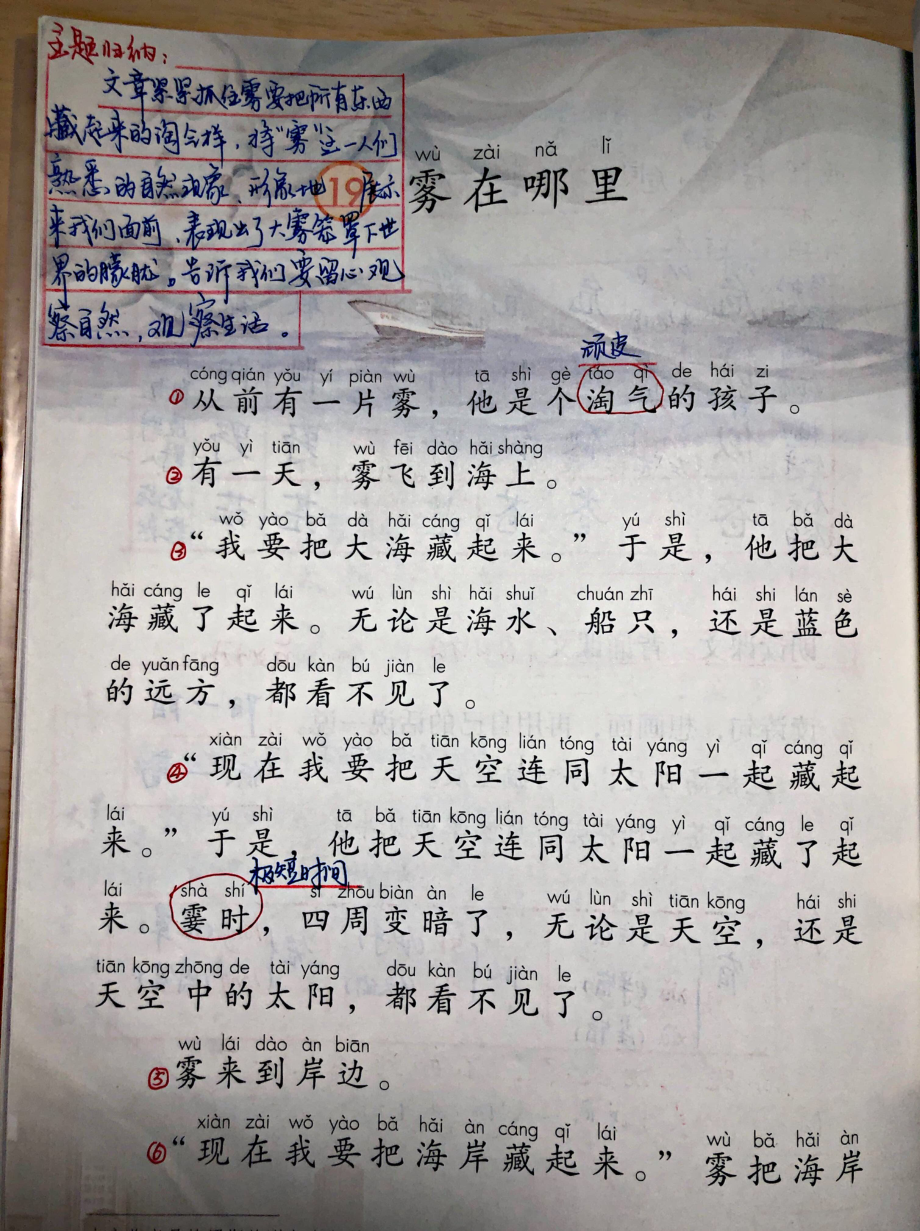 主题归纳：
文章紧紧抓住雾要把所有东西
藏起来的淘气样，将“雾”这一人们
熟悉的自然现象，形象地展示
来我们面前，表现出了大雾笼罩下世
界的朦胧。告诉我们要留心观
察自然，观察生活。
wù zài nǎ lǐ
19 雾在哪里
顽皮
cóng qián yǒu yí piàn wù tā shì gè táo qì de hái zi
①从前有一片雾，他是个淘气的孩子。
yǒu yì tiān wù fēi dào hǎi shàng
②有一天，雾飞到海上。
wǒ yào bǎ dà hǎi cáng qǐ lái yú shì tā bǎ dà
③“我要把大海藏起来。”于是，他把大
hǎi cáng le qǐ lái wú lùn shì hǎi shuǐ chuán zhī hái shi lán sè
海藏了起来。无论是海水、船只，还是蓝色
de yuǎn fāng dōu kàn bú jiàn le
的远方，都看不见了。
xiàn zài wǒ yào bǎ tiān kōng lián tóng tài yáng yì qǐ cáng qǐ
④“现在我要把天空连同太阳一起藏起
lái yú shì tā bǎ tiān kōng lián tóng tài yáng yì qǐ cáng le qǐ
来。”于是，他把天空连同太阳一起藏了起
极短时间
lái shà shí sì zhōu biàn àn le wú lùn shì tiān kōng hái shi
来。霎时，四周变暗了，无论是天空，还是
tiān kōng zhōng de tài yáng dōu kàn bú jiàn le
天空中的太阳，都看不见了。
wù lái dào àn biān
⑤雾来到岸边。
xiàn zài wǒ yào bǎ hǎi àn cáng qǐ lái wù bǎ hǎi àn
⑥“现在我要把海岸藏起来。”雾把海岸